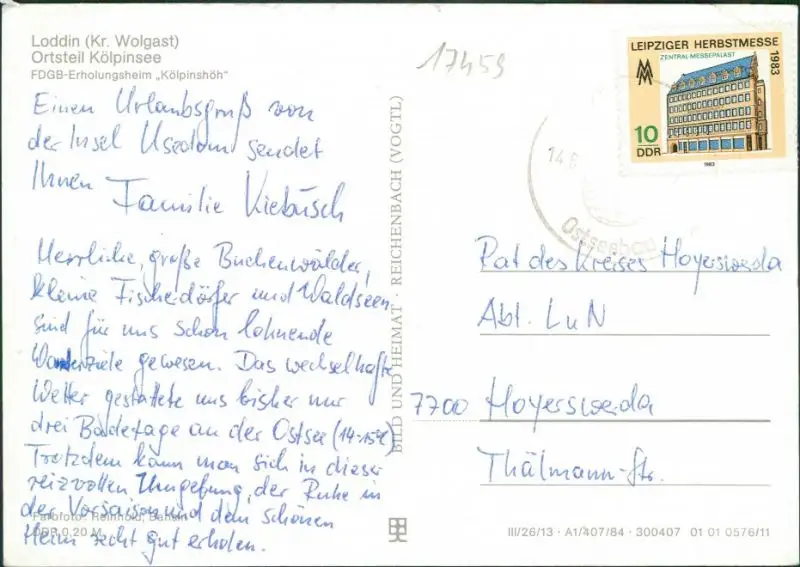 Loddin (Kr. Wolgast)
Ortsteil Kölpinsee
FDGB-Erholungsheim „Kölpinshöh"
Einen Urlaubsgruß von
der Insel Usedom sendet
Ihnen
Familie Kiebusch
Herrliche, große Buchenwälder,
kleine Fischerdörfer und Waldseen
sind für uns schon lohnende
Wanderziele gewesen. Das wechselhafte
Wetter gestattete uns bisher nur
drei Badetage an der Ostsee (14-15°C)
Trotzdem kann man sich in dieser
reizvollen Umgebung, der Ruhe in
der Vorsaison und dem schönen
Heim recht gut erholen.
Farbfoto: Reinhold,
0,20 M
BILD UND HEIMAT · REICHENBACH (VOGTL)
17459
LEIPZIGER HERBSTMESSE
1983
ZENTRAL-MESSEPALAST
10
DDR
1983
14.6
Ostseebad
Rat des Kreises Hoyerswerda
Abt. LuN
7700 Hoyerswerda
Thälmann-Str.
III/26/13 · A1/407/84 · 300407 01 01 0576/11